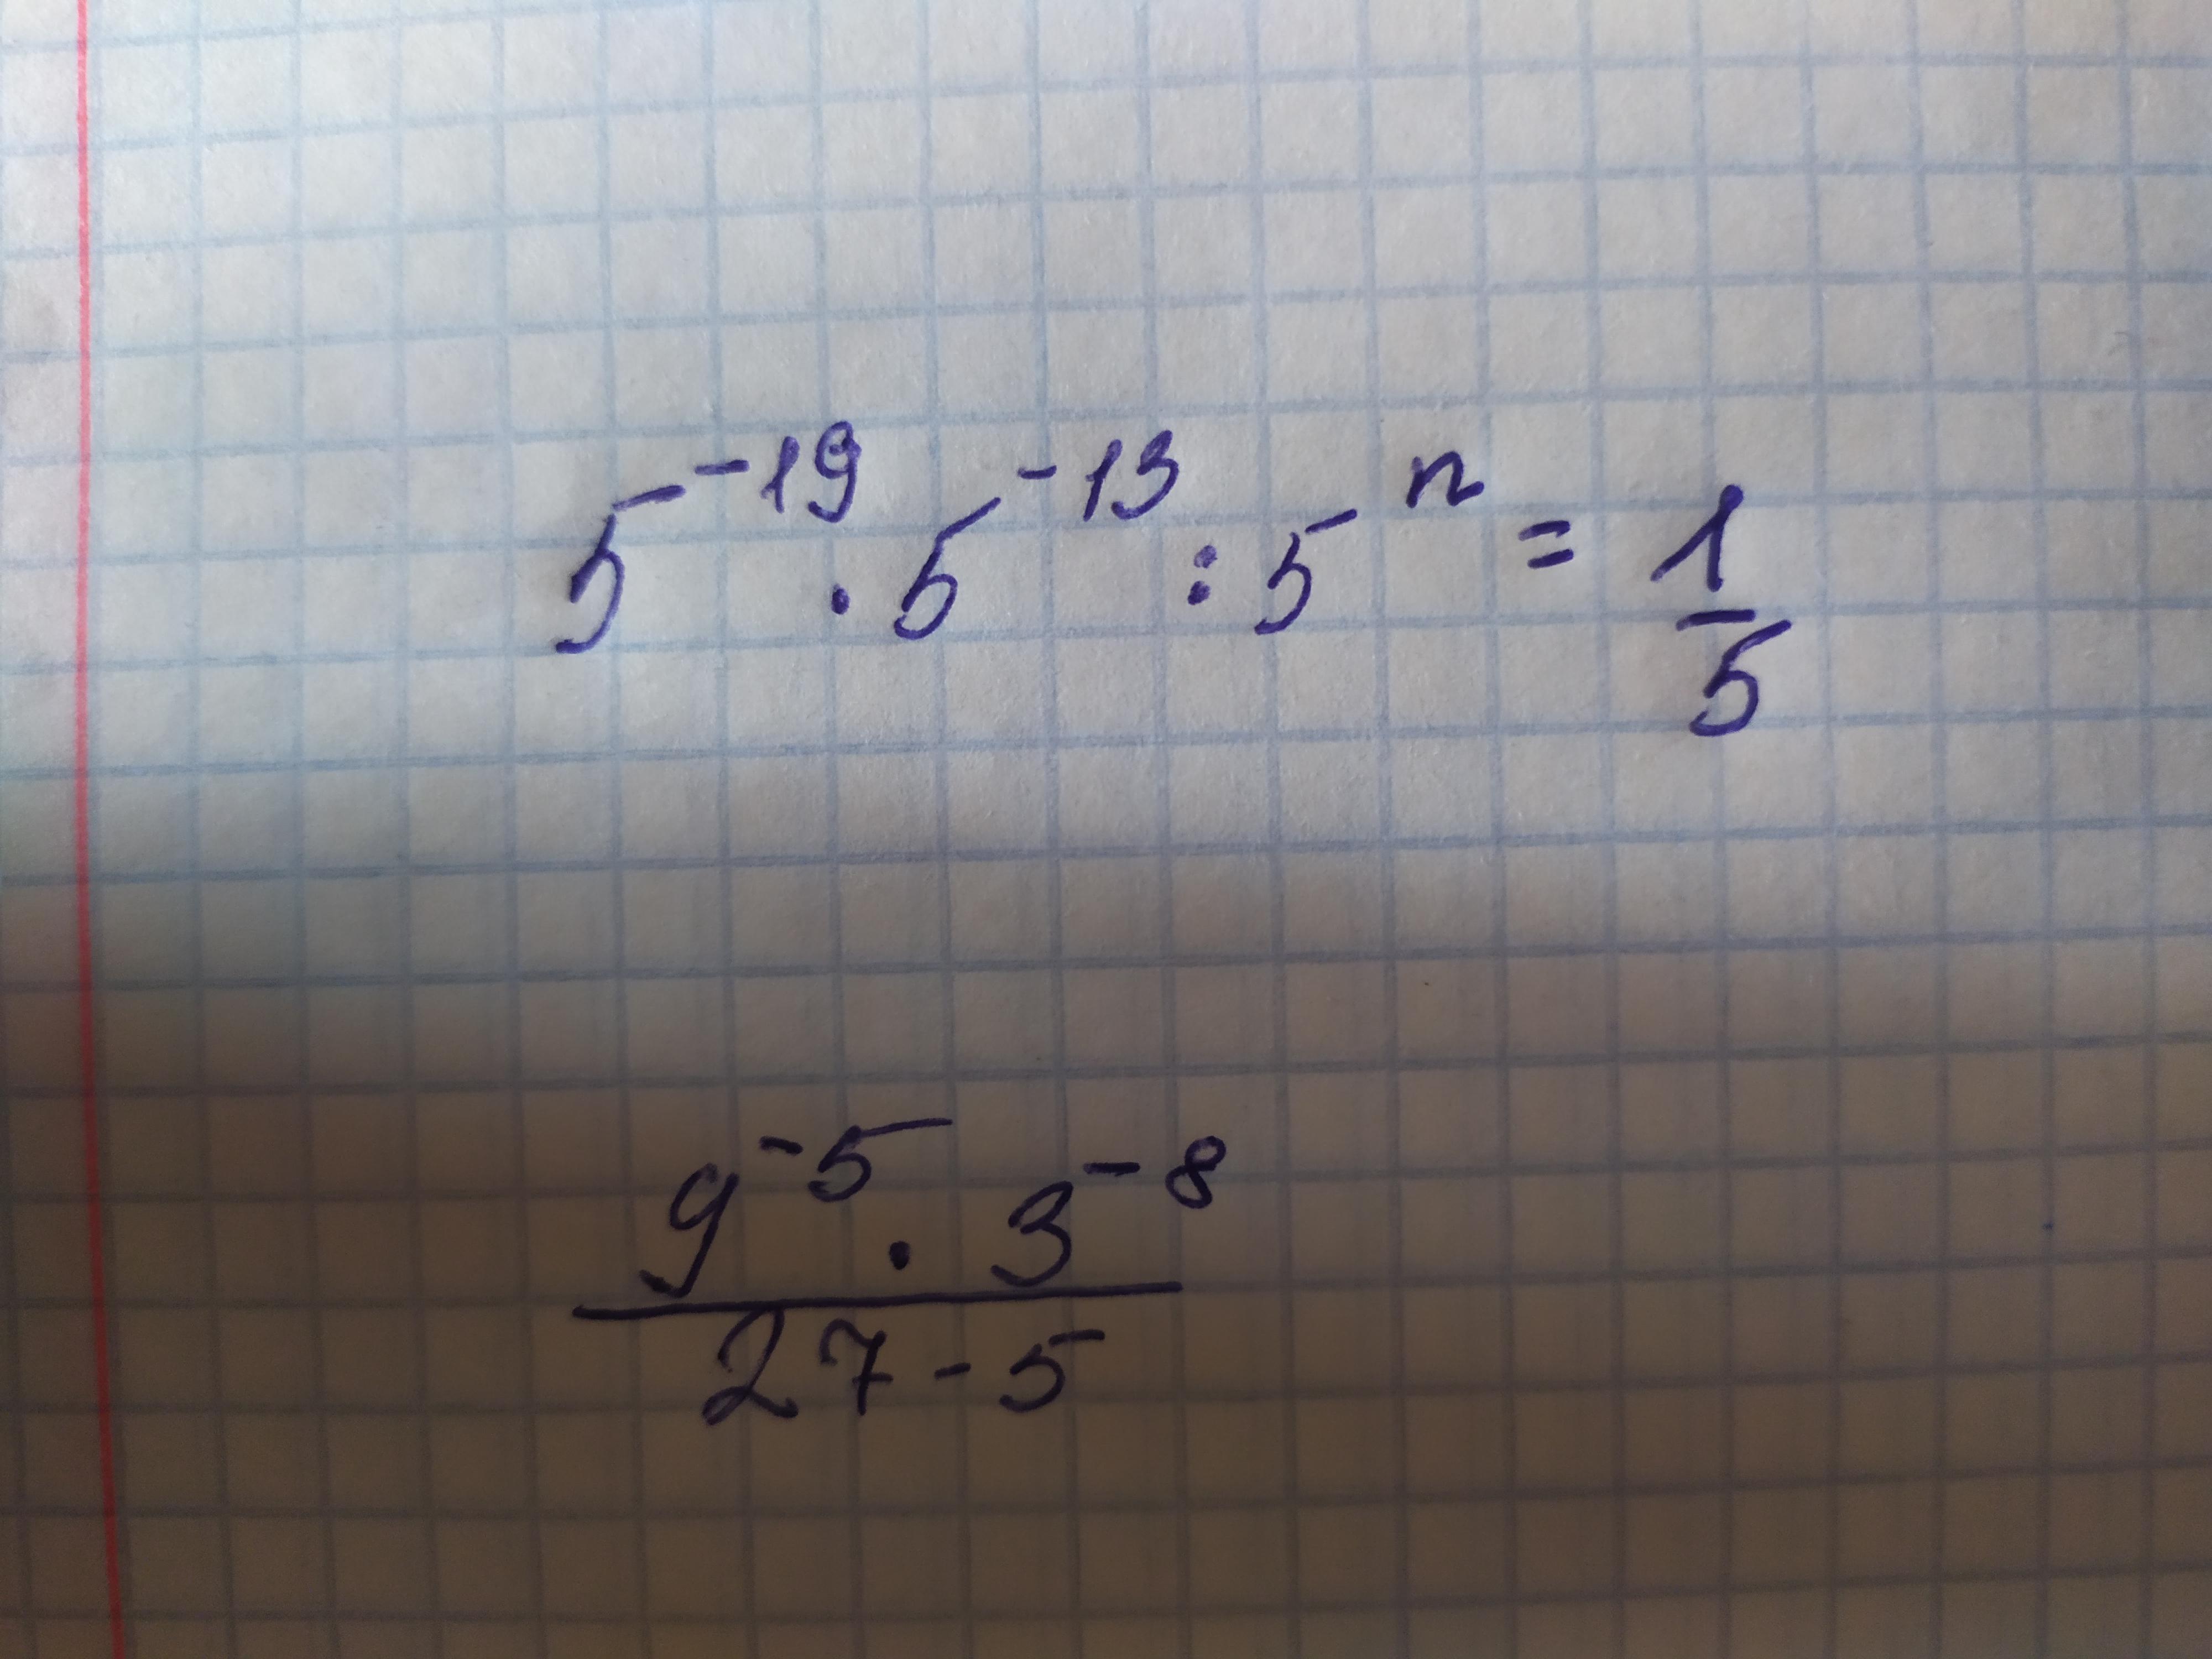 5⁻¹⁹ · 5⁻¹³ : 5ⁿ = 1/5
9⁻⁵ · 3⁻⁸
27 - 5